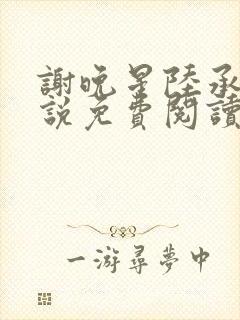 謝晚星陸承
說免費閱讀
一游尋夢中